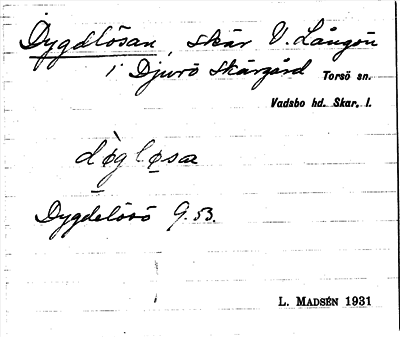 Dygdlösan, skär V. Långön
i Djurö skärgård Torsö sn.
Vadsbo hd. Skar. l.
dø̀gløsaz
Dygdelösö 9.53.
L. MADSÉN 1931